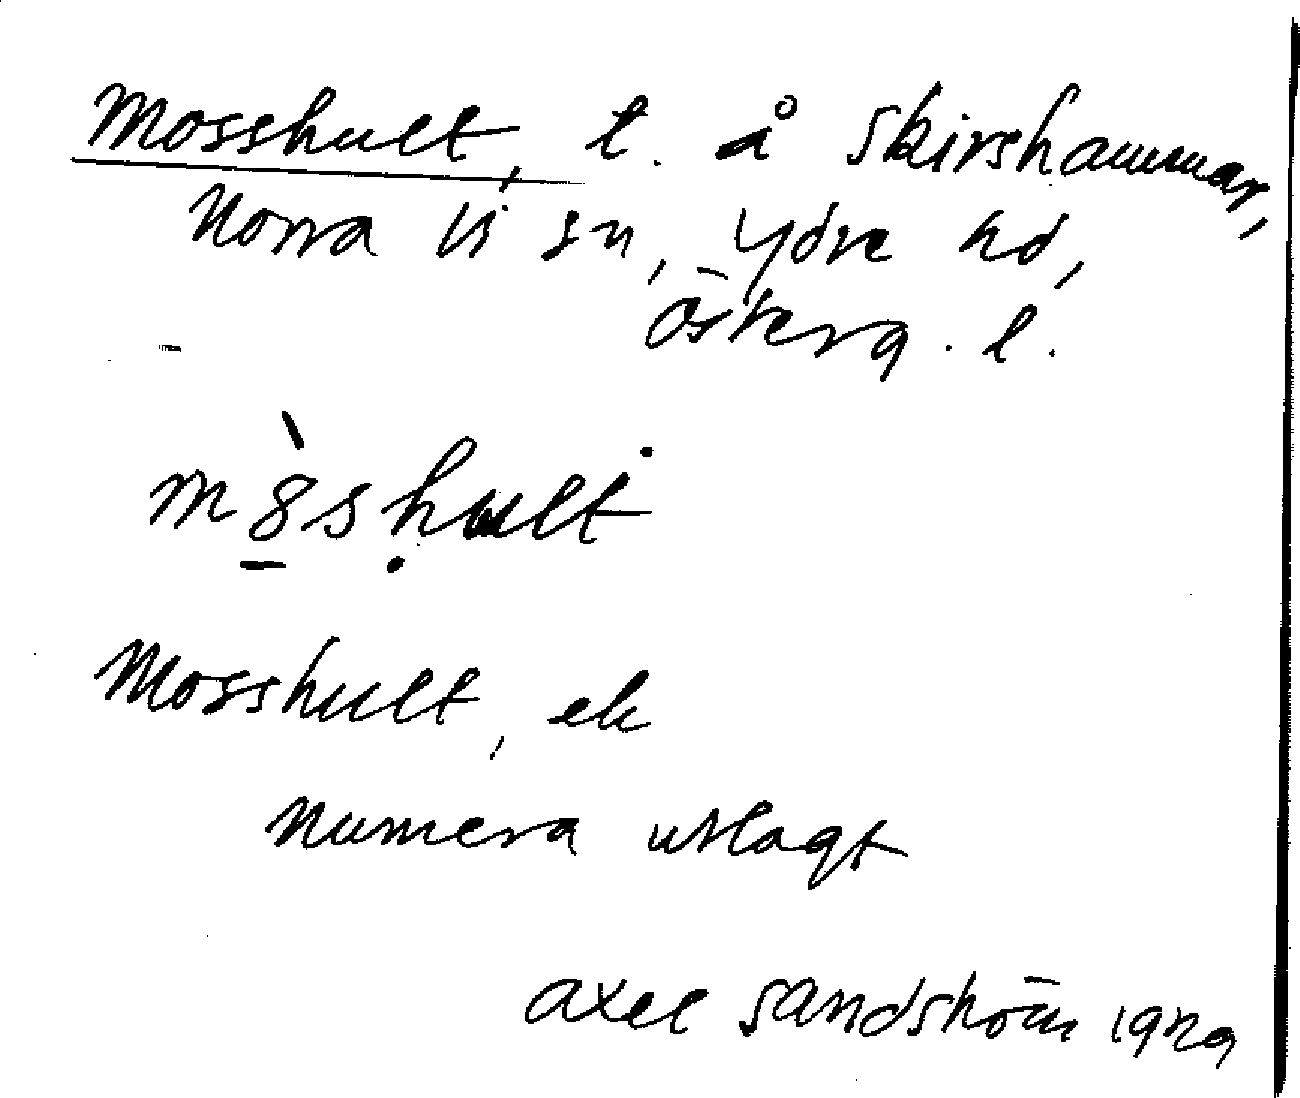 Mosshult, t. å Skirshammar,
Norra Vi sn, Ydre hd,
Österg. l.
m8̀shult
Mosshult, ek
numera utlagt
Axel Sandström 1929